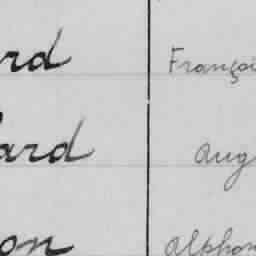 rd Françoi
ard Aug
on Alphon